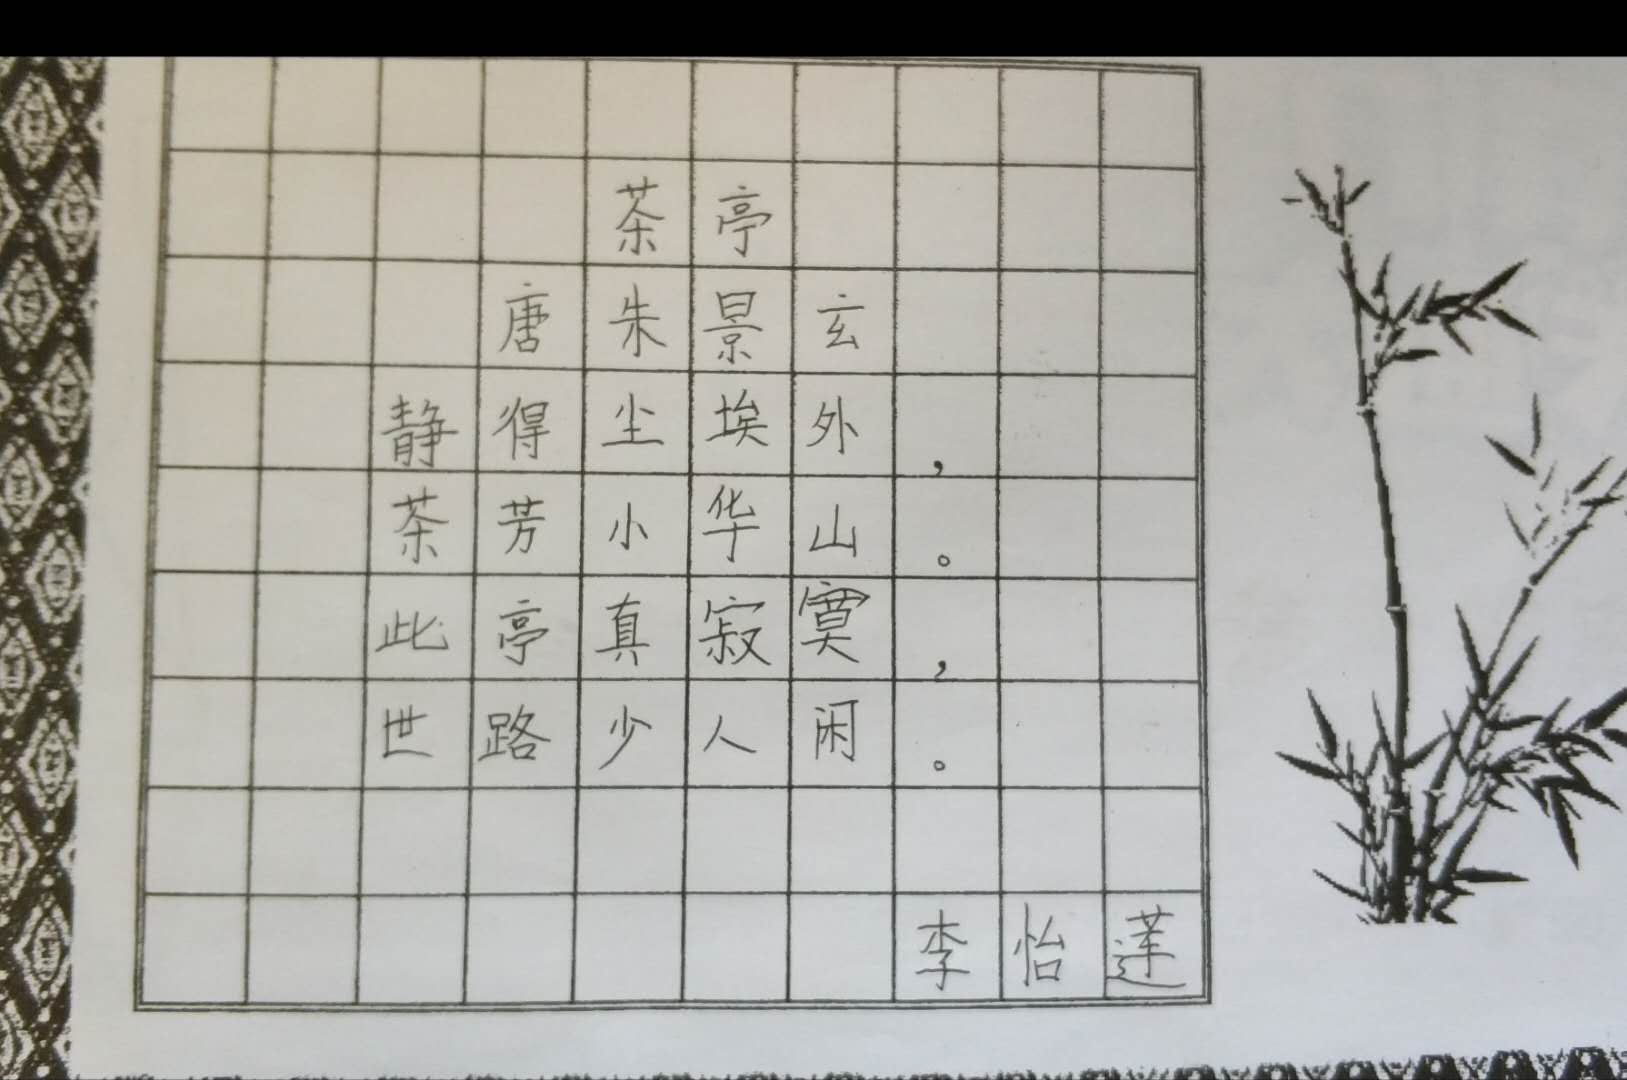 茶亭
唐朱景玄
静得尘埃外，
茶芳小华山。
此亭真寂寞，
世路少人闲。
李怡莲